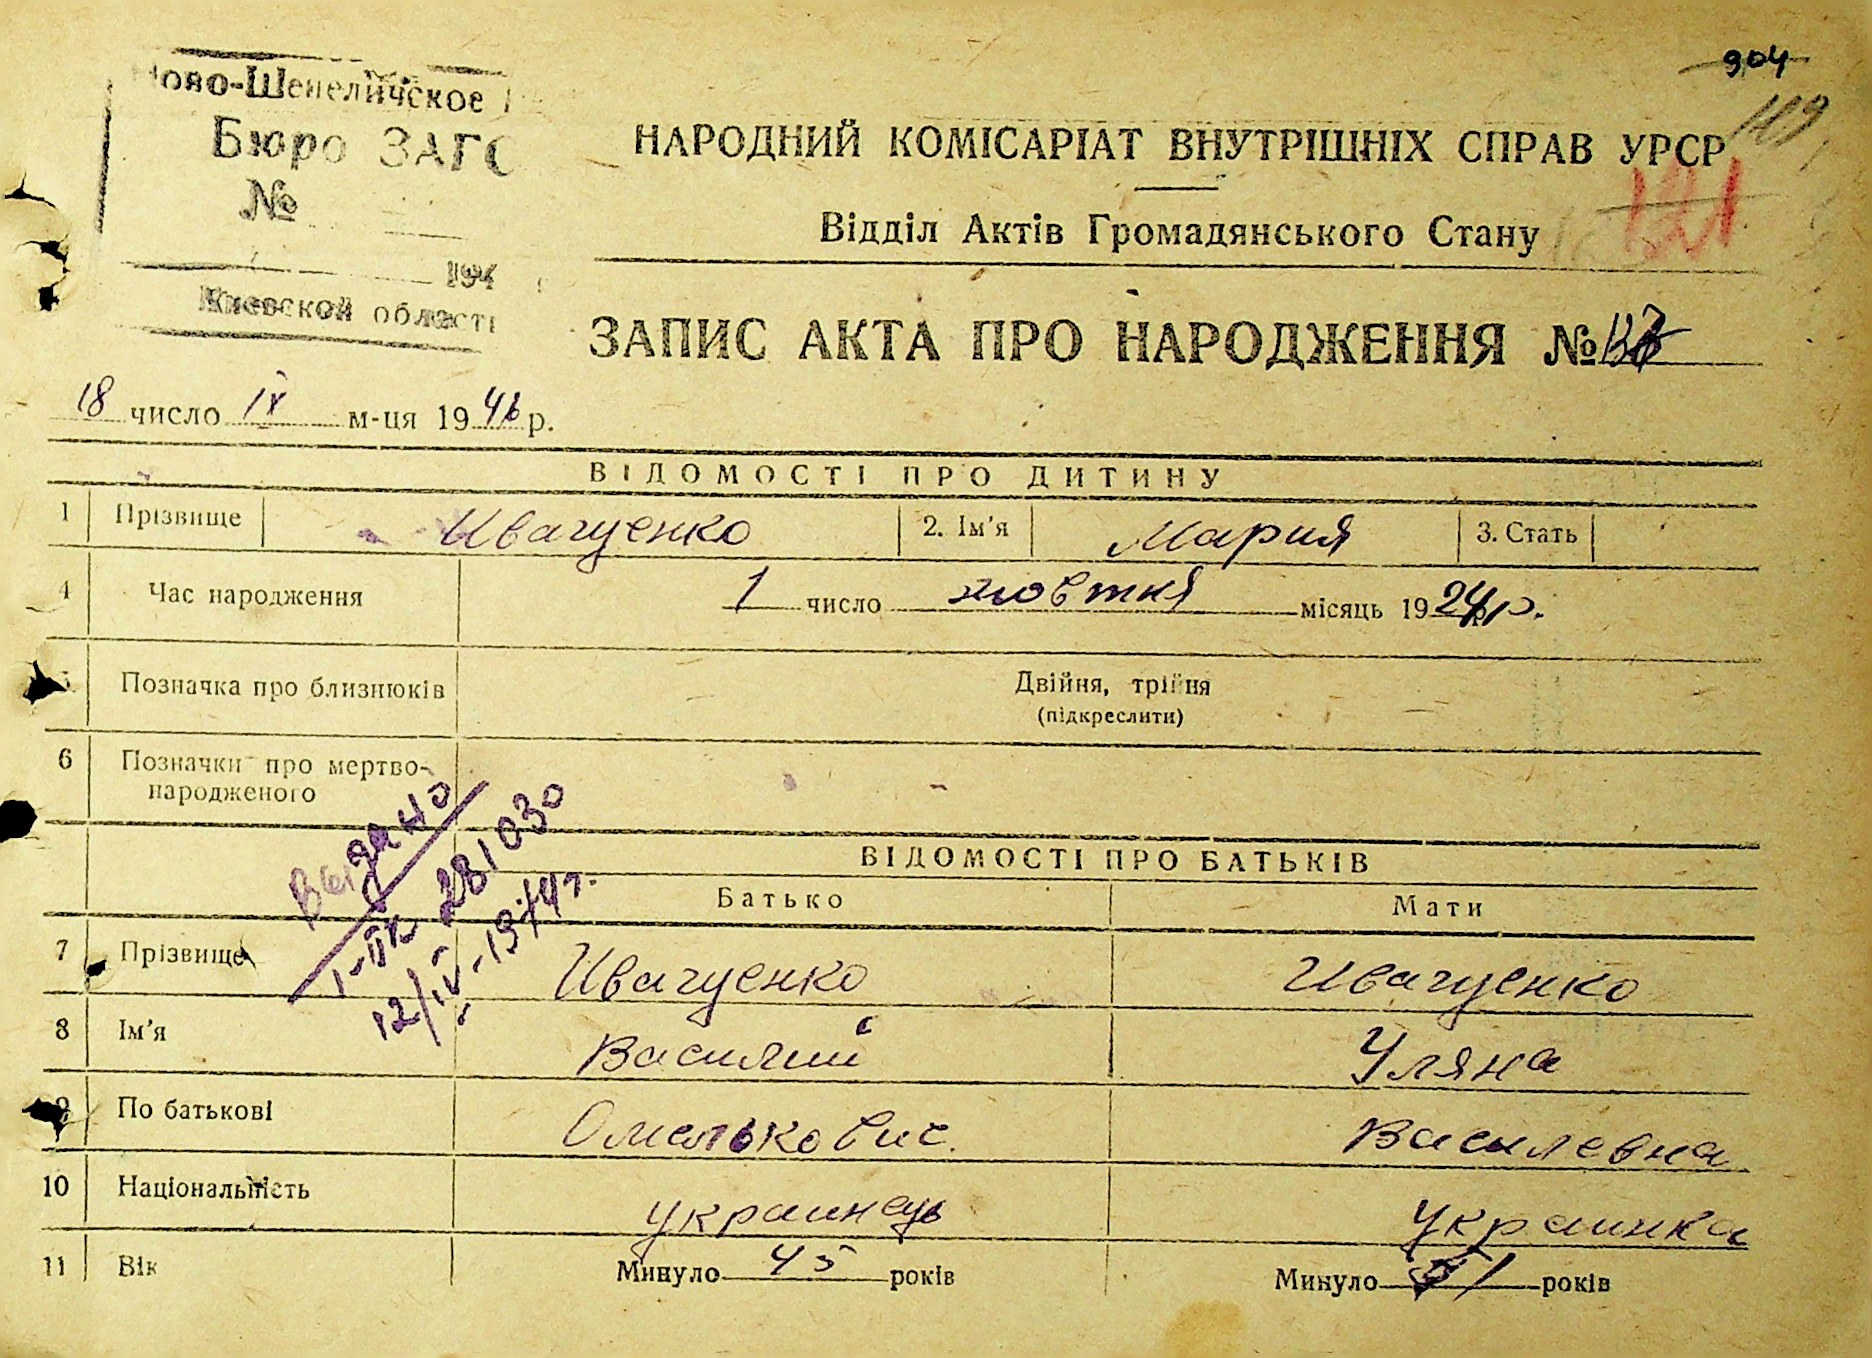 904
119
Ново-Шепеличское
Бюро ЗАГС
НАРОДНИЙ КОМІСАРІАТ ВНУТРІШНІХ СПРАВ УРСР
№
121
Відділ Актів Громадянського Стану
194
Киевской області
ЗАПИС АКТА ПРО НАРОДЖЕННЯ №
18 число IX м-ця 1946 р.
ВІДОМОСТІ ПРО ДИТИНУ
1 Прізвище Иващенко 2. Ім'я Мария 3. Стать
4 Час народження 1 число жовтня місяць 1924 р.
5 Позначка про близнюків Двійня, трійня
(підкреслити)
6 Позначки про мертво-
народженого
Выдано
І-ІІК 281030
12/IV-1974г.
ВІДОМОСТІ ПРО БАТЬКІВ
Батько Мати
7 Прізвище Иващенко Иващенко
8 Ім'я Василий Уляна
9 По батькові Омелькович. Василевна
10 Національність украинець украинка
11 Вік Минуло 45 років Минуло років